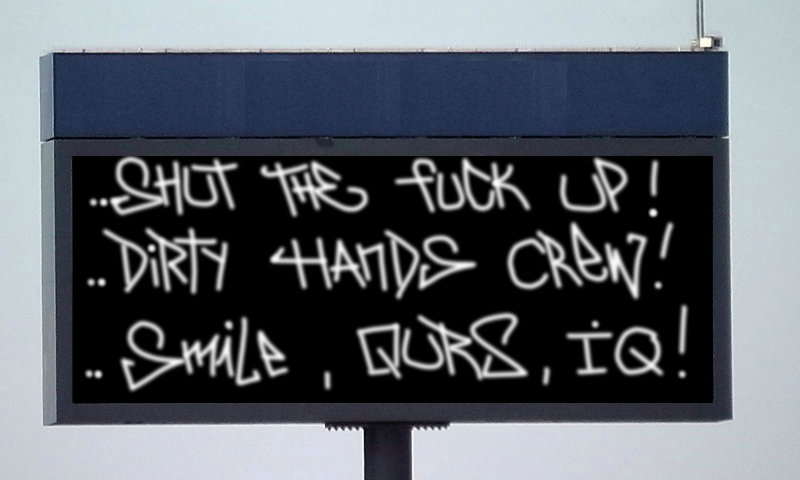 ..SHUT THE fUCK UP!
..DiRTY HANDS CREW!
..SMiLe, QURS, iQ!